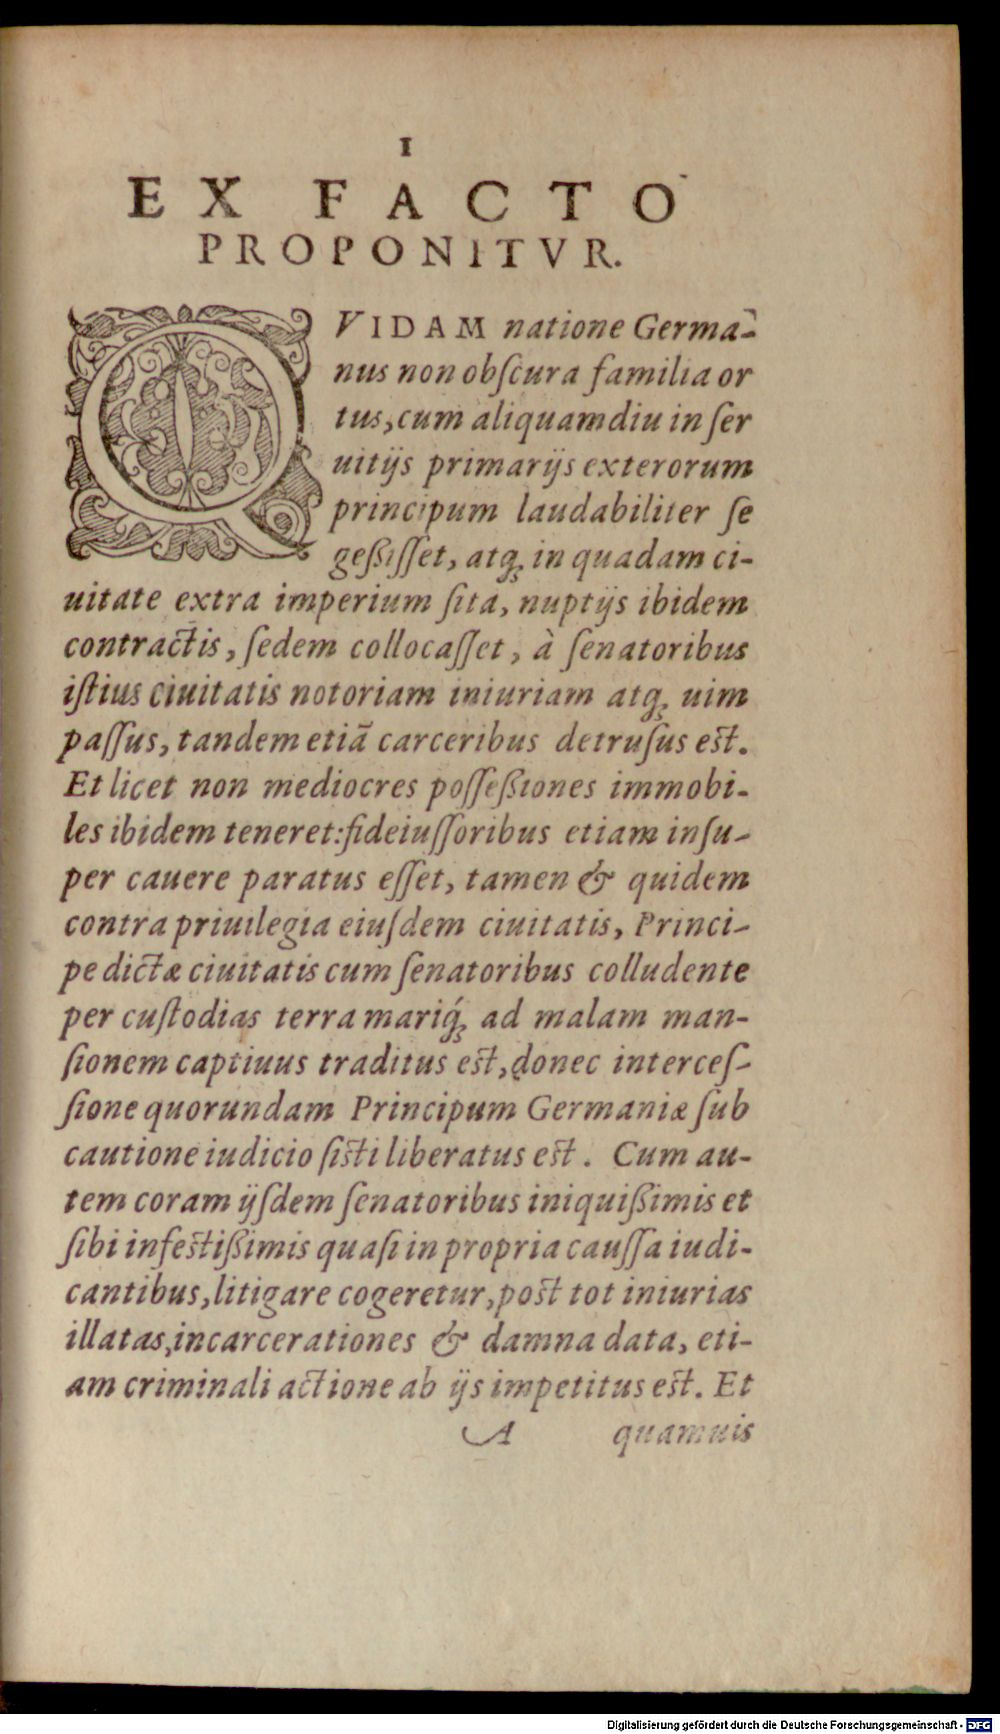 I
EX FACTO
PROPONITVR.
QVIDAM natione Germa-
nus non obſcura familia or
tus, cum aliquamdiu in ſer
uitijs primarijs exterorum
principum laudabiliter ſe
geßiſſet, atq; in quadam ci-
uitate extra imperium ſita, nuptijs ibidem
contractis, ſedem collocaſſet, à ſenatoribus
iſtius ciuitatis notoriam iniuriam atq; uim
paſſus, tandem etiã carceribus detruſus est.
Et licet non mediocres poſſeßiones immobi-
les ibidem teneret: fideiuſſoribus etiam inſu-
per cauere paratus eſſet, tamen & quidem
contra priuilegia eiuſdem ciuitatis, Princi-
pe dictæ ciuitatis cum ſenatoribus colludente
per cuſtodias terra mariq́; ad malam man-
ſionem captiuus traditus est, donec interceſ-
ſione quorundam Principum Germaniæ ſub
cautione iudicio ſisti liberatus est. Cum au-
tem coram ijſdem ſenatoribus iniquißimis et
ſibi infestißimis quaſi in propria cauſſa iudi-
cantibus, litigare cogeretur, post tot iniurias
illatas, incarcerationes & damna data, eti-
am criminali actione ab ijs impetitus est. Et
A quamuis
Digitalisierung gefördert durch die Deutsche Forschungsgemeinschaft - DFG